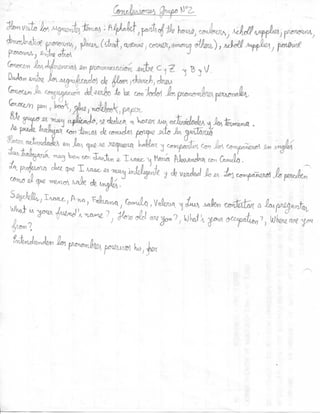 Conclusiones Grupo N°2
Han visto los siguientes temas: Alphabet, parts of the house, coulours, scholl supplies, pronouns,
demonstrative pronouns, places (street, avenue, corner, among others), scholl supplies, possesive
pronouns, entre otros
Conocen las diferencias en pronunciación entre C y Z y B y V
Dudan entre los significados de floor, church, chess
Conocen la conjugación del verbo to be con todos los pronombres personales.
Conocen pen, book, glue, notebook, paper.
Este grupo es muy aplicado, se dedica a hacer sus actividades y las termina.
Se puede trabajar con temas de comedia porque esto les gusta
Hacer actividades en las que se requiera hablar y compartir con los compañeros en inglés
Les trabajaría muy bien con Justin e Isaac y María Alexandra con Camilo.
La profesora dice que Isaac es muy inteligente y de verdad lo es. Los compañeros lo perciben
como el que menos sabe de inglés.
Isaac, Ana, Fabiana, Camilo, Valeria y saben contestar a las preguntas
What is your friend's name?, How old are you?, What's your occupation?, Where are you
from?
Entendiendo los pronombres posesivos his, her